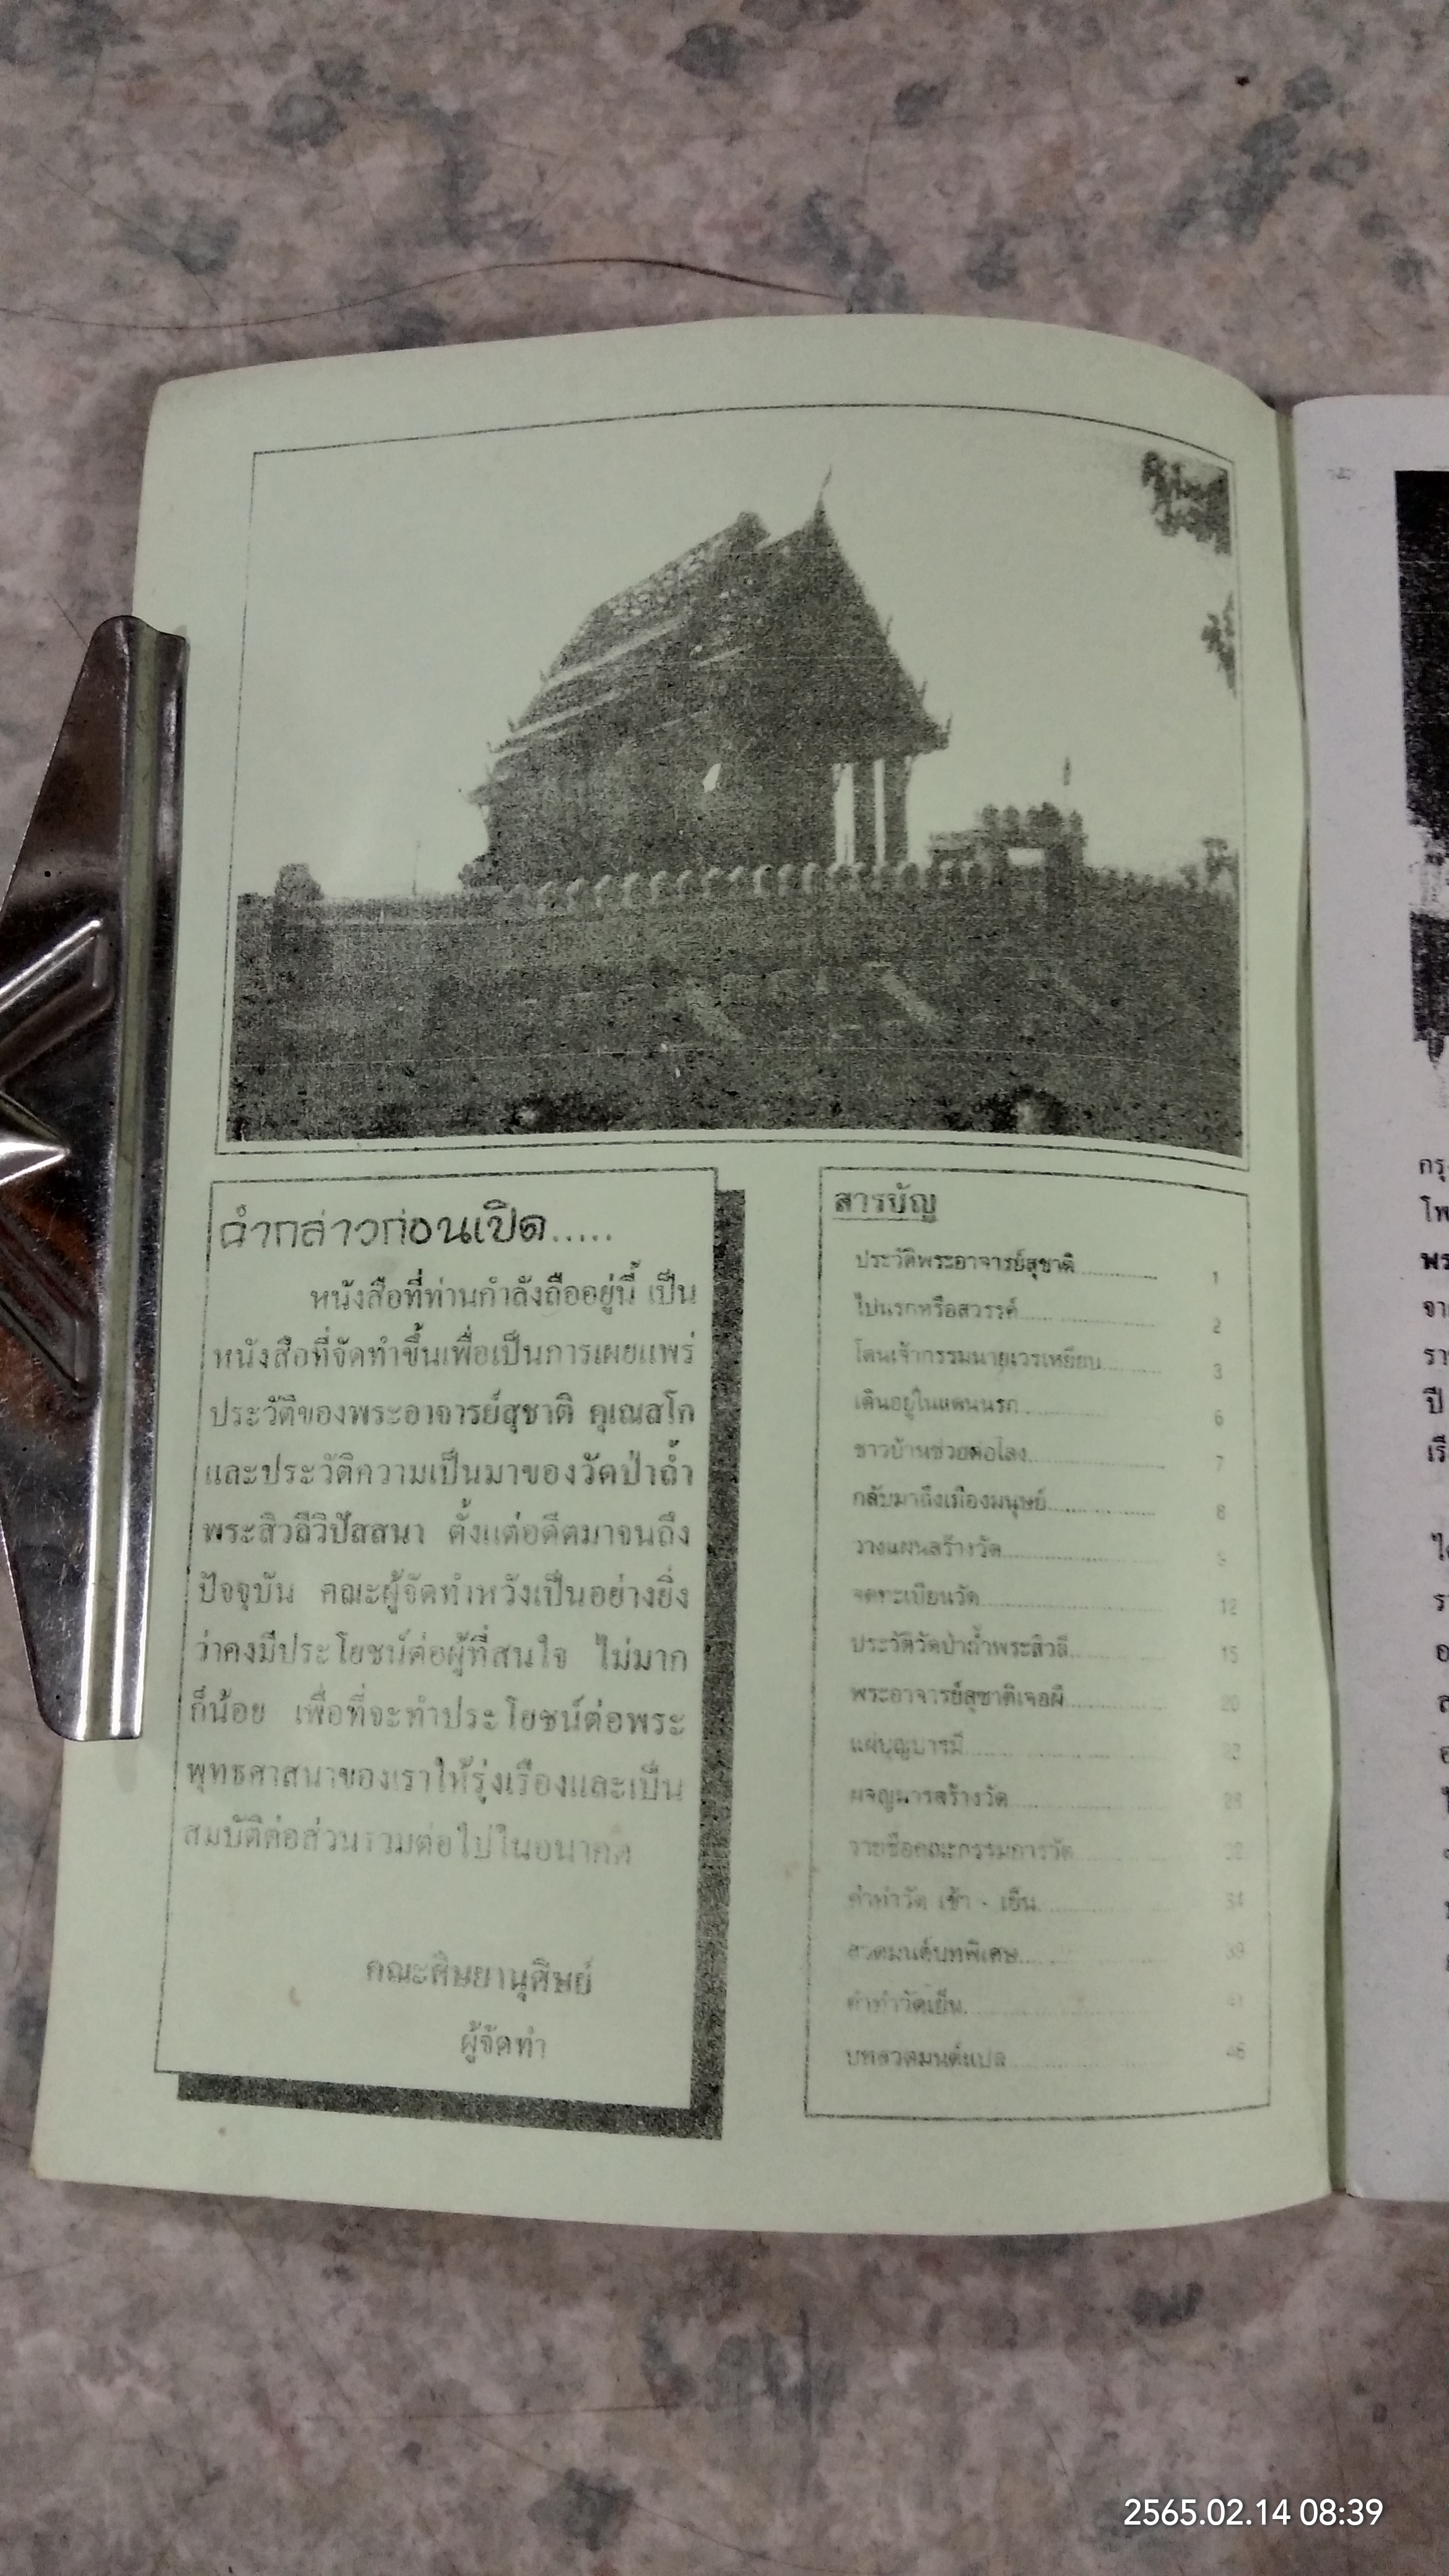 คำกล่าวก่อนเปิด.....
หนังสือที่ท่านกำลังถืออยู่นี้ เป็น
หนังสือที่จัดทำขึ้นเพื่อเป็นการเผยแพร่
ประวัติของพระอาจารย์สุชาติ คุเณสโก
และประวัติความเป็นมาของวัดป่าถ้ำ
พระสิวลีวิปัสสนา ตั้งแต่อดีตมาจนถึง
ปัจจุบัน คณะผู้จัดทำหวังเป็นอย่างยิ่ง
ว่าคงมีประโยชน์ต่อผู้ที่สนใจ ไม่มาก
ก็น้อย เพื่อที่จะทำประโยชน์ต่อพระ
พุทธศาสนาของเราให้รุ่งเรืองและเป็น
สมบัติต่อส่วนรวมต่อไปในอนาคต
คณะศิษยานุศิษย์
ผู้จัดทำ
สารบัญ
ประวัติพระอาจารย์สุชาติ............... 1
ไปนรกหรือสวรรค์............... 2
โดนเจ้ากรรมนายเวรเหยียบ............... 3
เดินอยู่ในแดนนรก............... 6
ชาวบ้านช่วยต่อโลง............... 7
กลับมาถึงเมืองมนุษย์............... 8
วางแผนสร้างวัด............... 9
จดทะเบียนวัด............... 12
ประวัติวัดป่าถ้ำพระสิวลี............... 15
พระอาจารย์สุชาติเจอผี............... 20
แผ่บุญบารมี...............
ผจญมารสร้างวัด...............
รายชื่อคณะกรรมการวัด...............
คำทำวัด เช้า - เย็น............... 34
สวดมนต์บทพิเศษ............... 39
คำทำวัดเย็น...............
บทสวดมนต์แปล............... 46
กรุ
โพ
พร
จา
รา
ปี
เรื
2565.02.14 08:39